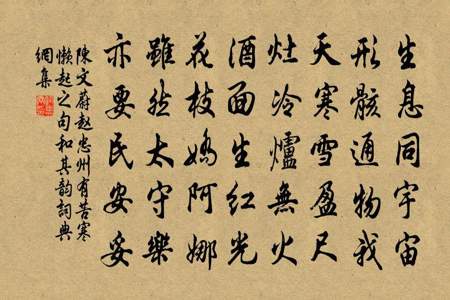 生息同宇宙
形骸通物我
天寒雪盈尺
灶冷爐無火
酒面生紅光
花枝嬌阿娜
雖然太守樂
亦要民安妥
陳文蔚趙忠州有苦寒
懶起之句和其韵詞典
網集